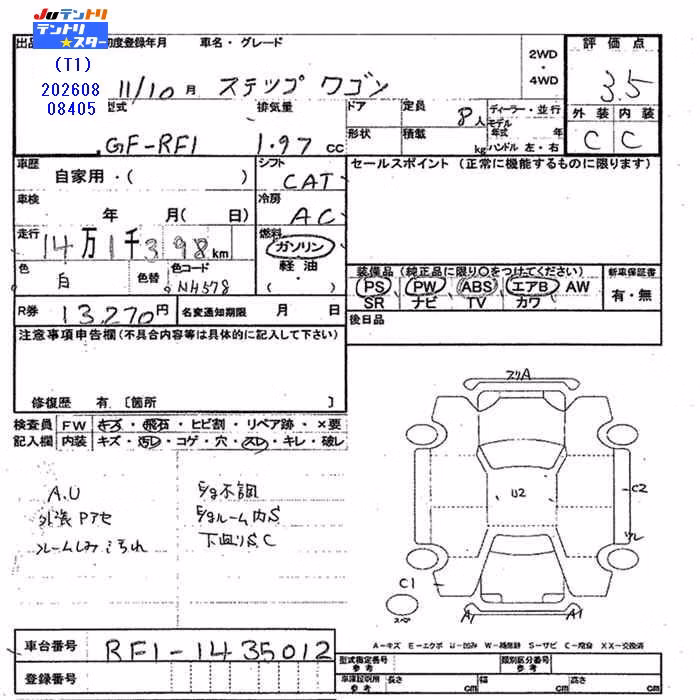 JUテントリ
テントリ★スター
(T1)
202608
08405
初度登録年月 車名・グレード
11/10月 ステップワゴン
2WD・4WD
評価点
3.5
外装 内装
C C
型式 排気量
GF-RF1 1.97 cc
ドア 定員 8人
形状 積載 kg
ディーラー・並行
モデル年式 年
ハンドル 左・右
車歴
自家用・( )
シフト
CAT
車検
年 月( 日)
冷房
AC
走行
14万1千398km
燃料
ガソリン
軽油
( ・ )
色 白 色替 色コード NH578
R券 13,270円 名変通知期限 月 日
セールスポイント (正常に機能するものに限ります)
装備品 (純正品に限り○をつけてください)
PS PW ABS エアB AW
SR ナビ TV カワ
新車保証書
有・無
後日品
注意事項申告欄(不具合内容等は具体的に記入して下さい)
修復歴 有 〔箇所 〕
検査員記入欄
FW キズ・飛石・ヒビ割・リペア跡・×要
内装 キズ・汚レ・コゲ・穴・スレ・キレ・破レ
A.U
外装Pアセ
E/g不調
E/gルーム内S
下廻りS.C
スリA
U2
C2
C1
スペア
A1 A1
車台番号 RF1-1435012
登録番号
A-キズ E-エクボ
S-サビ C-腐食 XX-交換済
型式指定番号 参考
類別区分番号 参考
長さ cm 幅 cm 高さ cm